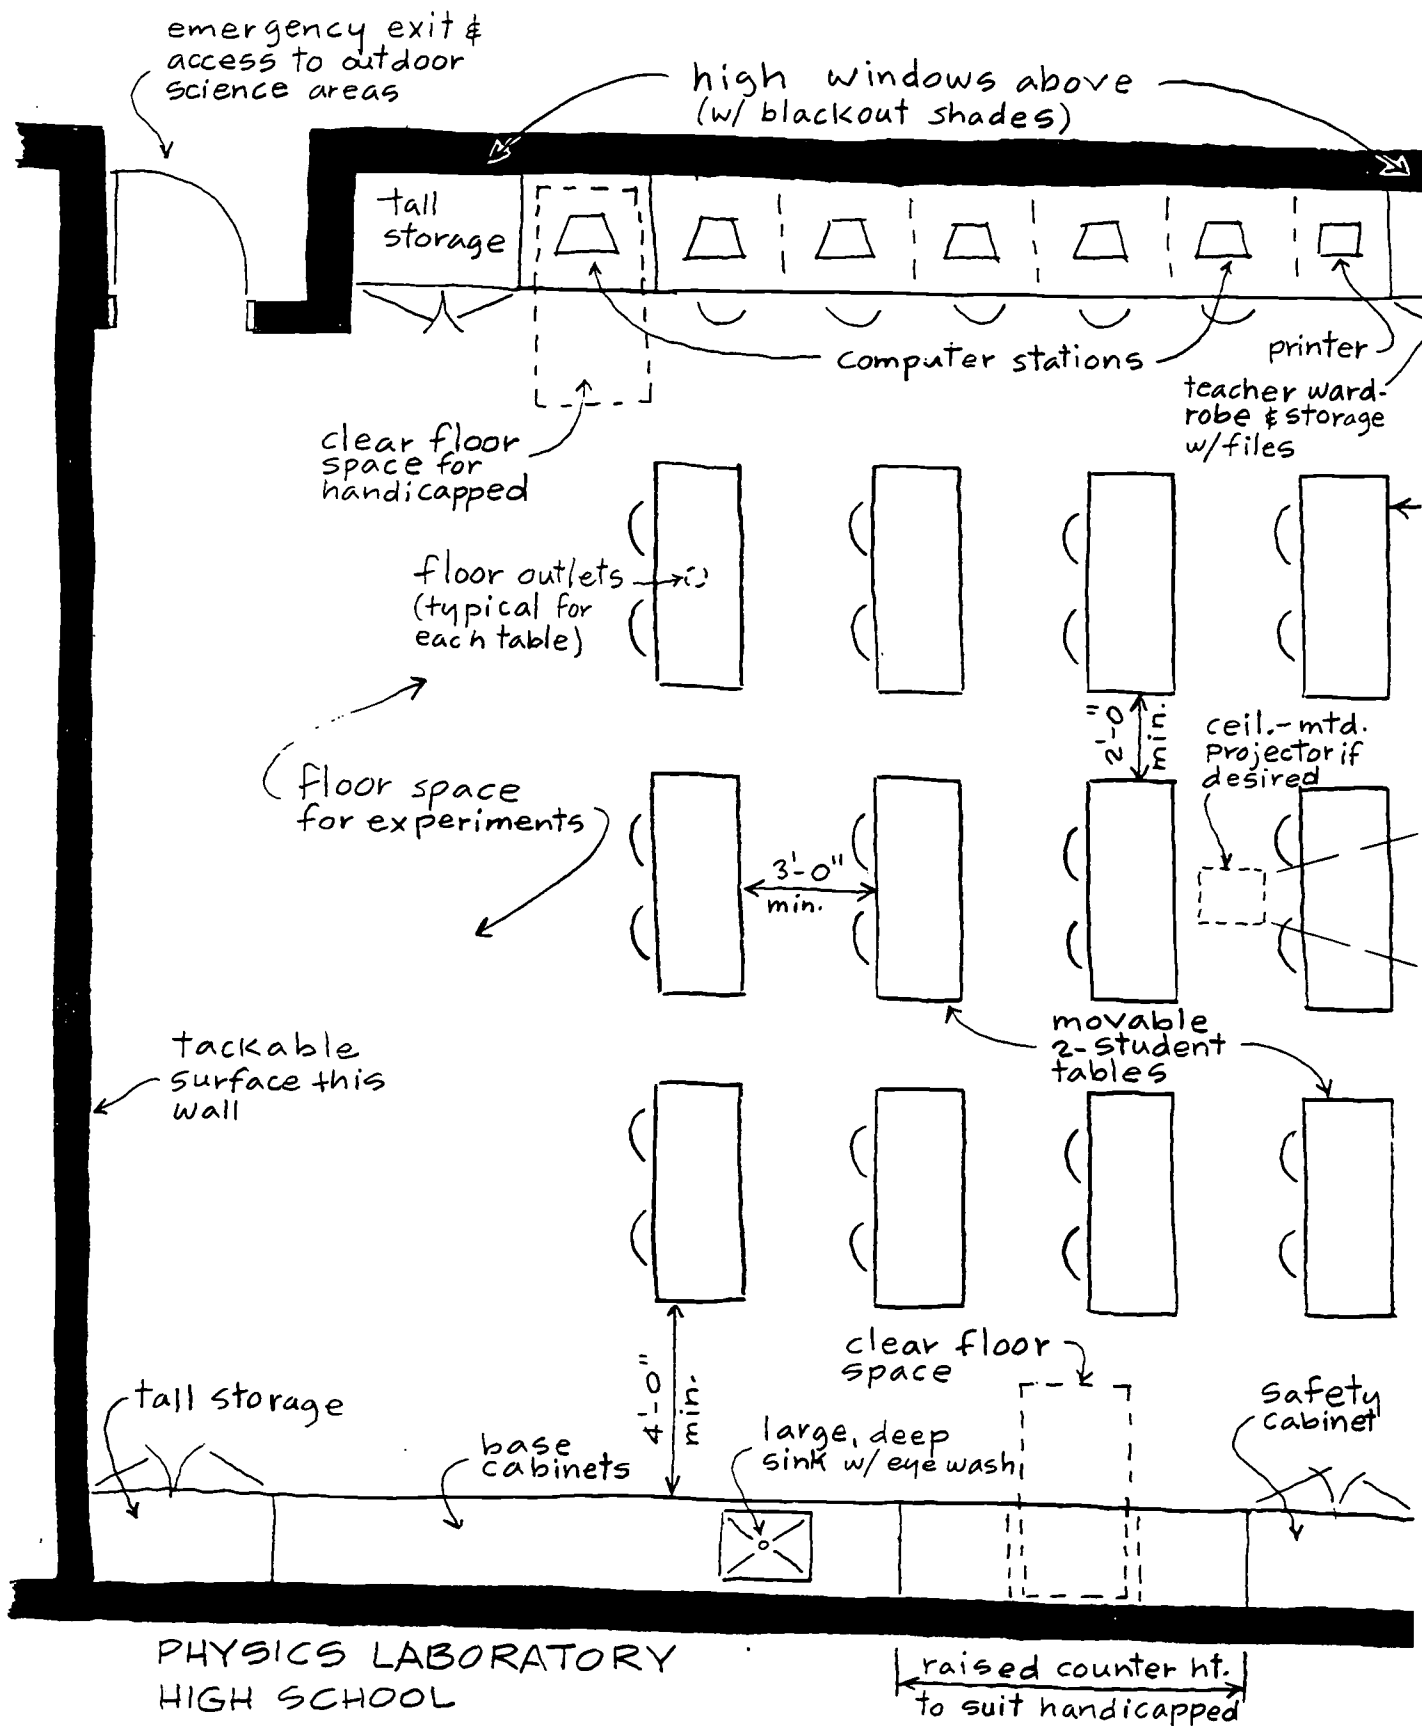 emergency exit &
access to outdoor
science areas
high windows above
(w/ blackout shades)
tall
storage
computer stations
printer
teacher ward-
robe & storage
w/files
clear floor
space for
handicapped
floor outlets
(typical for
each table)
2'-0"
min.
ceil.-mtd.
projector if
desired
floor space
for experiments
3'-0"
min.
movable
2-student
tables
tackable
surface this
wall
clear floor
space
4'-0"
min.
tall storage
base
cabinets
large, deep
sink w/ eye wash
safety
cabinet
PHYSICS LABORATORY
HIGH SCHOOL
raised counter ht.
to suit handicapped